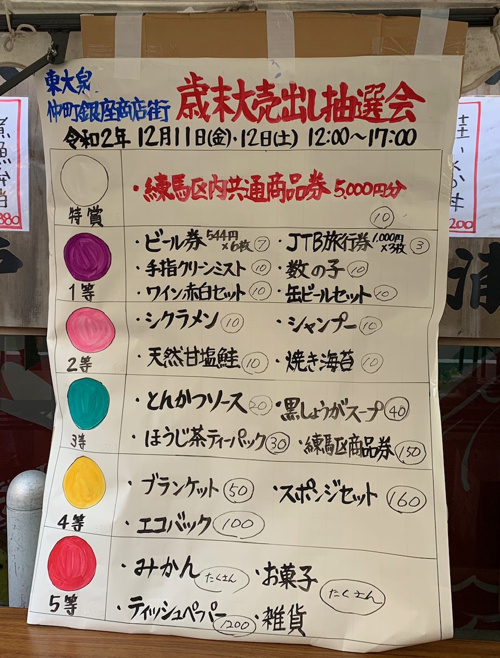 東大泉
仲町銀座商店街
歳末大売出し抽選会
令和2年 12月11日(金)・12日(土) 12:00～17:00
特賞
・練馬区内共通商品券 5,000円分
10
1等
・ビール券 544円×6枚 7 ・JTB旅行券 1,000円×3枚 3
・手指クリーンミスト 10 ・数の子 10
・ワイン赤白セット 10 ・缶ビールセット 10
2等
・シクラメン 10 ・シャンプー 10
・天然甘塩鮭 10 ・焼き海苔 10
3等
・とんかつソース 20 ・黒しょうがスープ 40
・ほうじ茶ティーパック 30 ・練馬区商品券 150
4等
・ブランケット 50 ・スポンジセット 160
・エコバック 100
5等
・みかん たくさん ・お菓子 たくさん
・ティッシュペーパー 1200 ・雑貨
煮魚弁当
880
弁当
200
浦